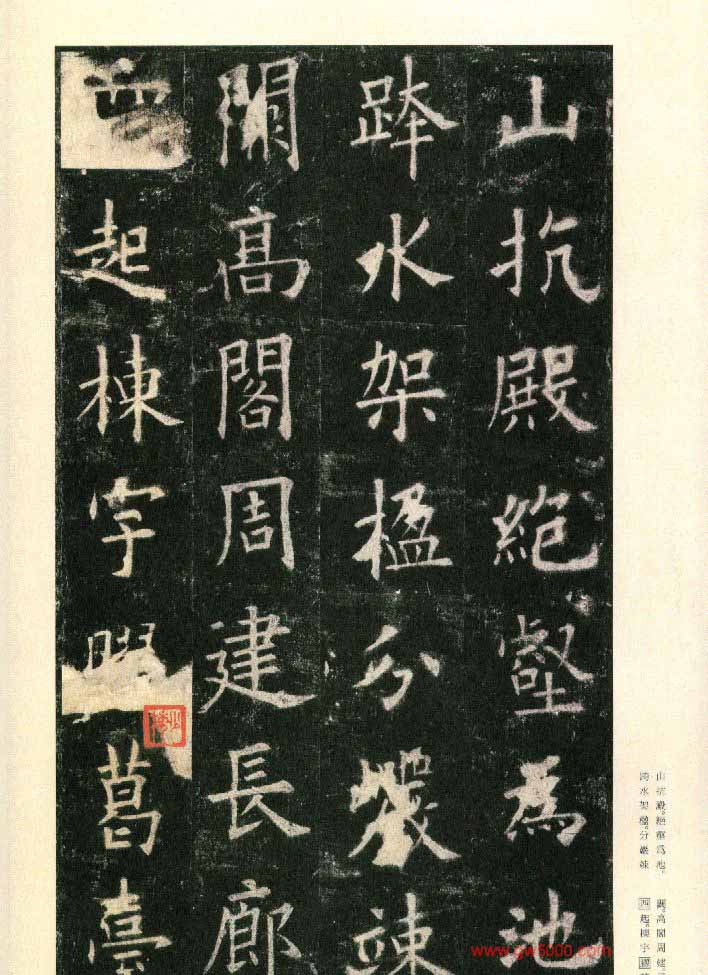 山抗殿絕壑為池
跨水架楹分巖竦
闕高閣周建長廊
四起棟宇膠葛臺
山抗殿。絕壑為池。
跨水架楹。分巖竦
闕。高閣周建
四起。棟宇